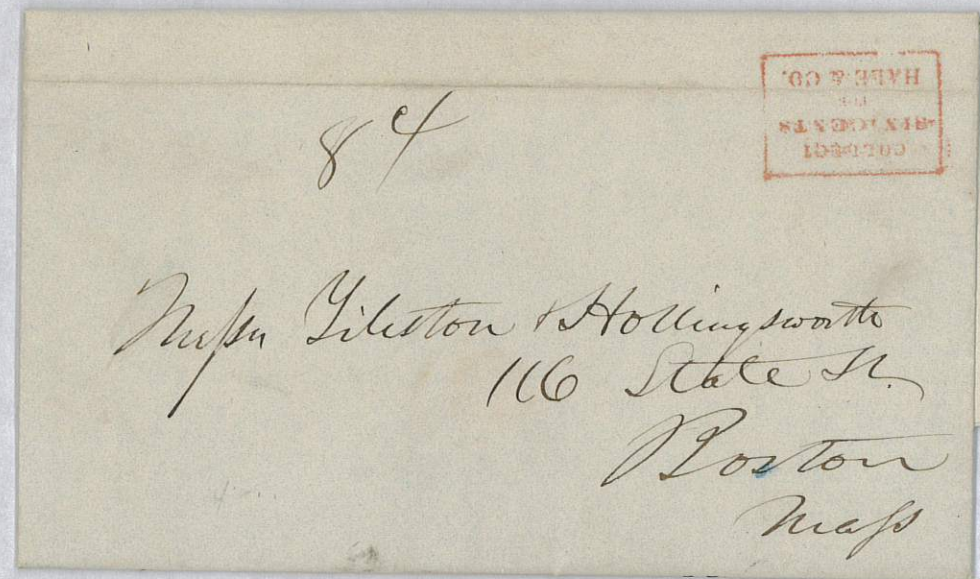 COLLECT
SIX CENTS
FOR
HALE & CO.
8
Messrs Tileston & Hollingsworth
116 State St.
Boston
Mass